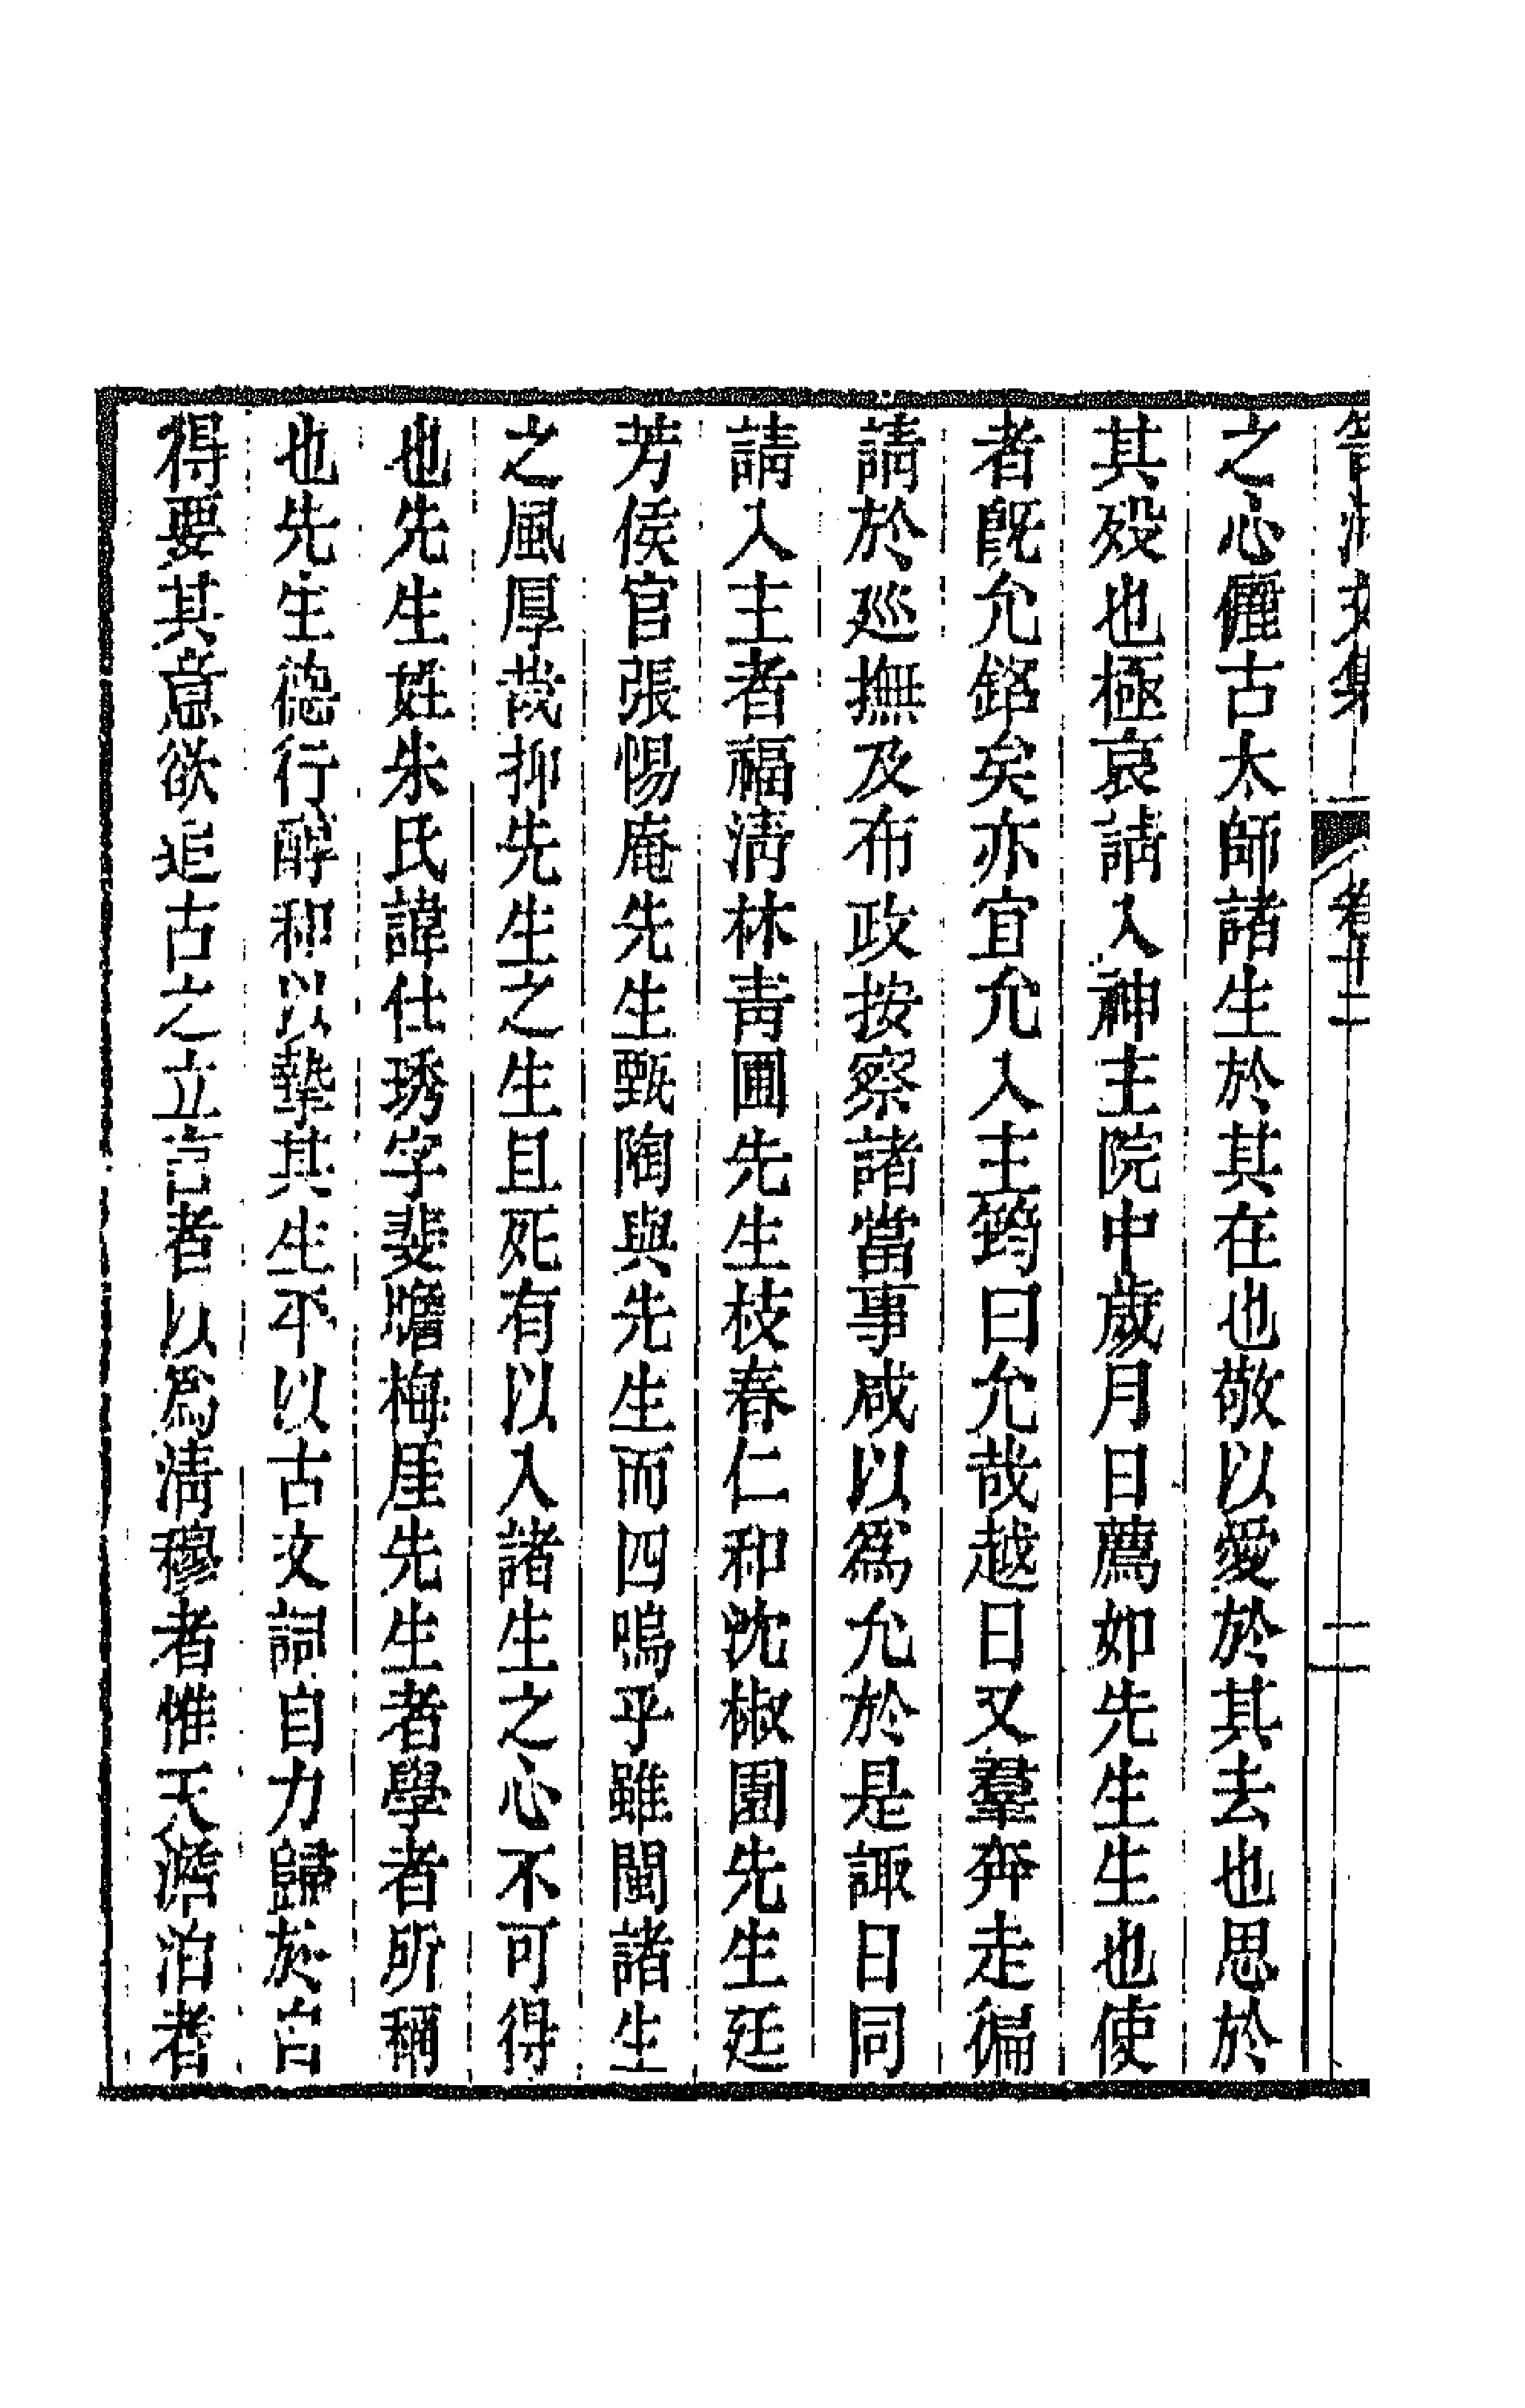 笥河文集
卷十二
之心儷古太師諸生於其在也敬以愛於其去也思於
其歿也極哀請入神主院中歲月日薦如先生生也使
者旣允銘矣亦宜允入主筠曰允哉越日又羣奔走徧
請於廵撫及布政按察諸當事咸以爲允於是諏日同
請入主者福淸林靑圃先生枝春仁和沈椒園先生廷
芳侯官張惕庵先生甄陶與先生而四嗚乎雖閩諸生
之風厚哉抑先生之生且死有以入諸生之心不可得
也先生姓朱氏諱仕琇字斐瞻梅厓先生者學者所稱
也先生德行醇和以摯其生平以古文詞自力歸於自
得要其意欲追古之立言者以爲淸穆者惟天澹泊者